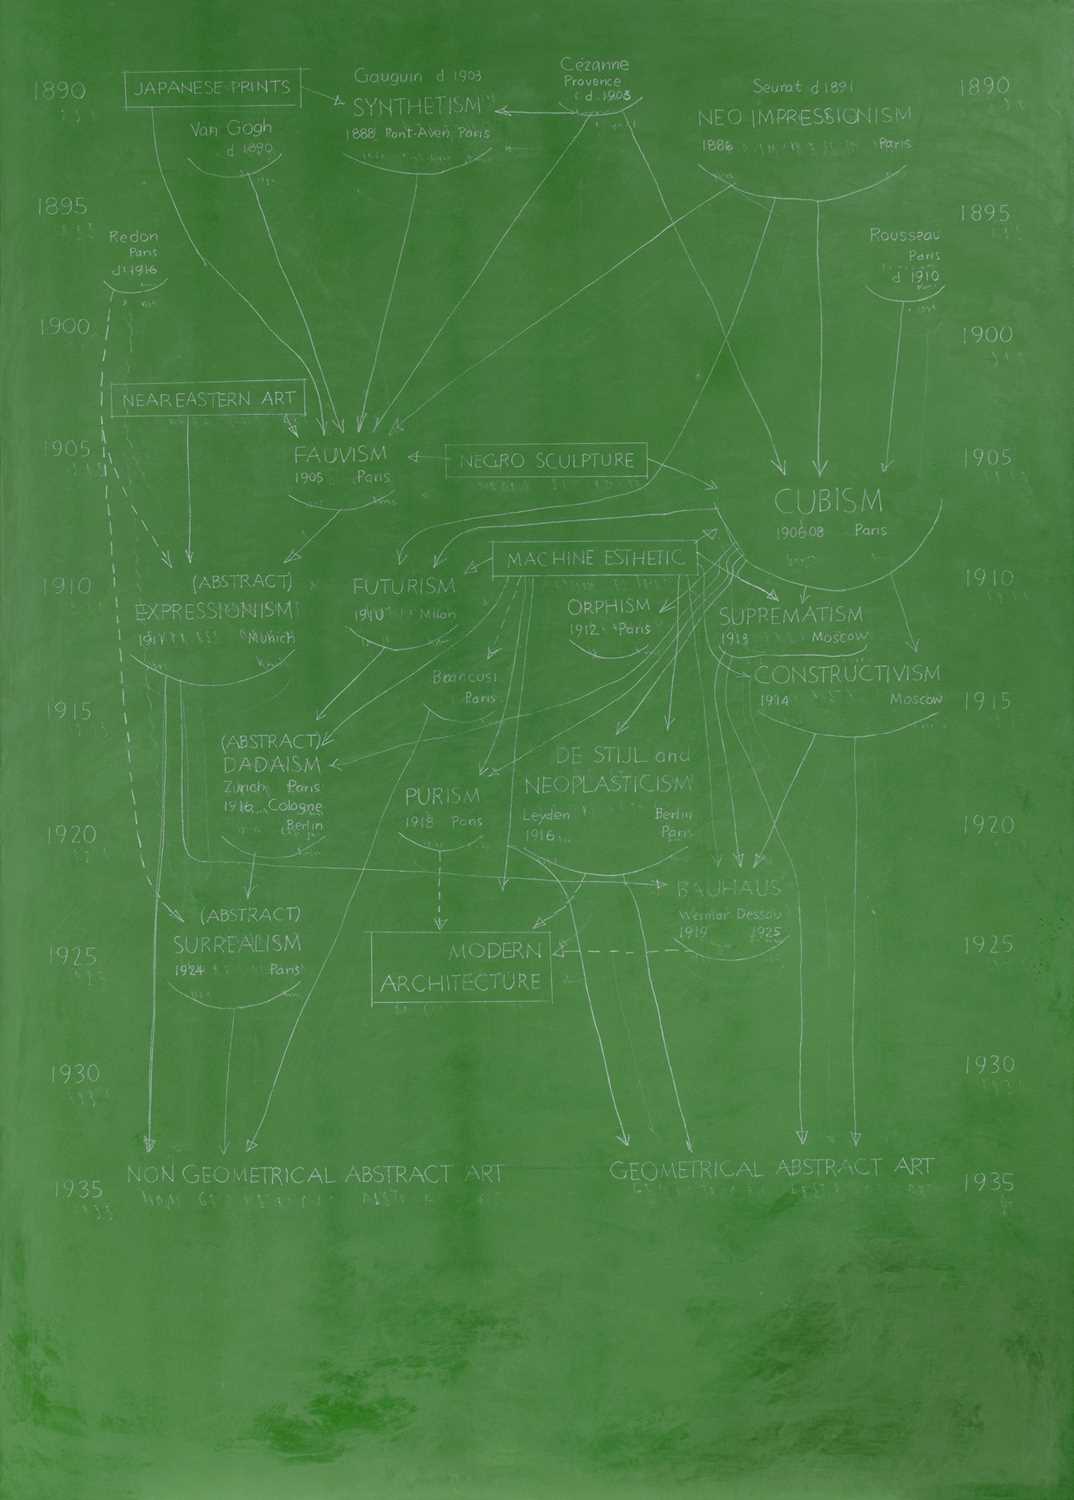 1890
JAPANESE PRINTS
Gauguin d 1903
SYNTHETISM
1888 Pont-Aven, Paris
Cézanne
Provence
d. 1905
Seurat d 1891
NEO IMPRESSIONISM
1886 Paris
1890
Van Gogh
d 1890
1895
1895
Redon
Paris
d. 1916
Rousseau
Paris
d 1910
1900
1900
NEAR EASTERN ART
1905
FAUVISM
1905 Paris
NEGRO SCULPTURE
1905
CUBISM
190608 Paris
MACHINE ESTHETIC
1910
(ABSTRACT)
EXPRESSIONISM
1911 Munich
FUTURISM
1910 Milan
ORPHISM
1912 Paris
SUPREMATISM
1913 Moscow
1910
Brancusi
Paris
CONSTRUCTIVISM
1914 Moscow
1915
1915
(ABSTRACT)
DADAISM
Zurich Paris
1916 Cologne
Berlin
PURISM
1918 Paris
DE STIJL and
NEOPLASTICISM
Leyden Berlin
1916 Paris
1920
1920
BAUHAUS
Weimar Dessau
1919 1925
(ABSTRACT)
SURREALISM
1924 Paris
MODERN
ARCHITECTURE
1925
1925
1930
1930
NON GEOMETRICAL ABSTRACT ART
GEOMETRICAL ABSTRACT ART
1935
1935